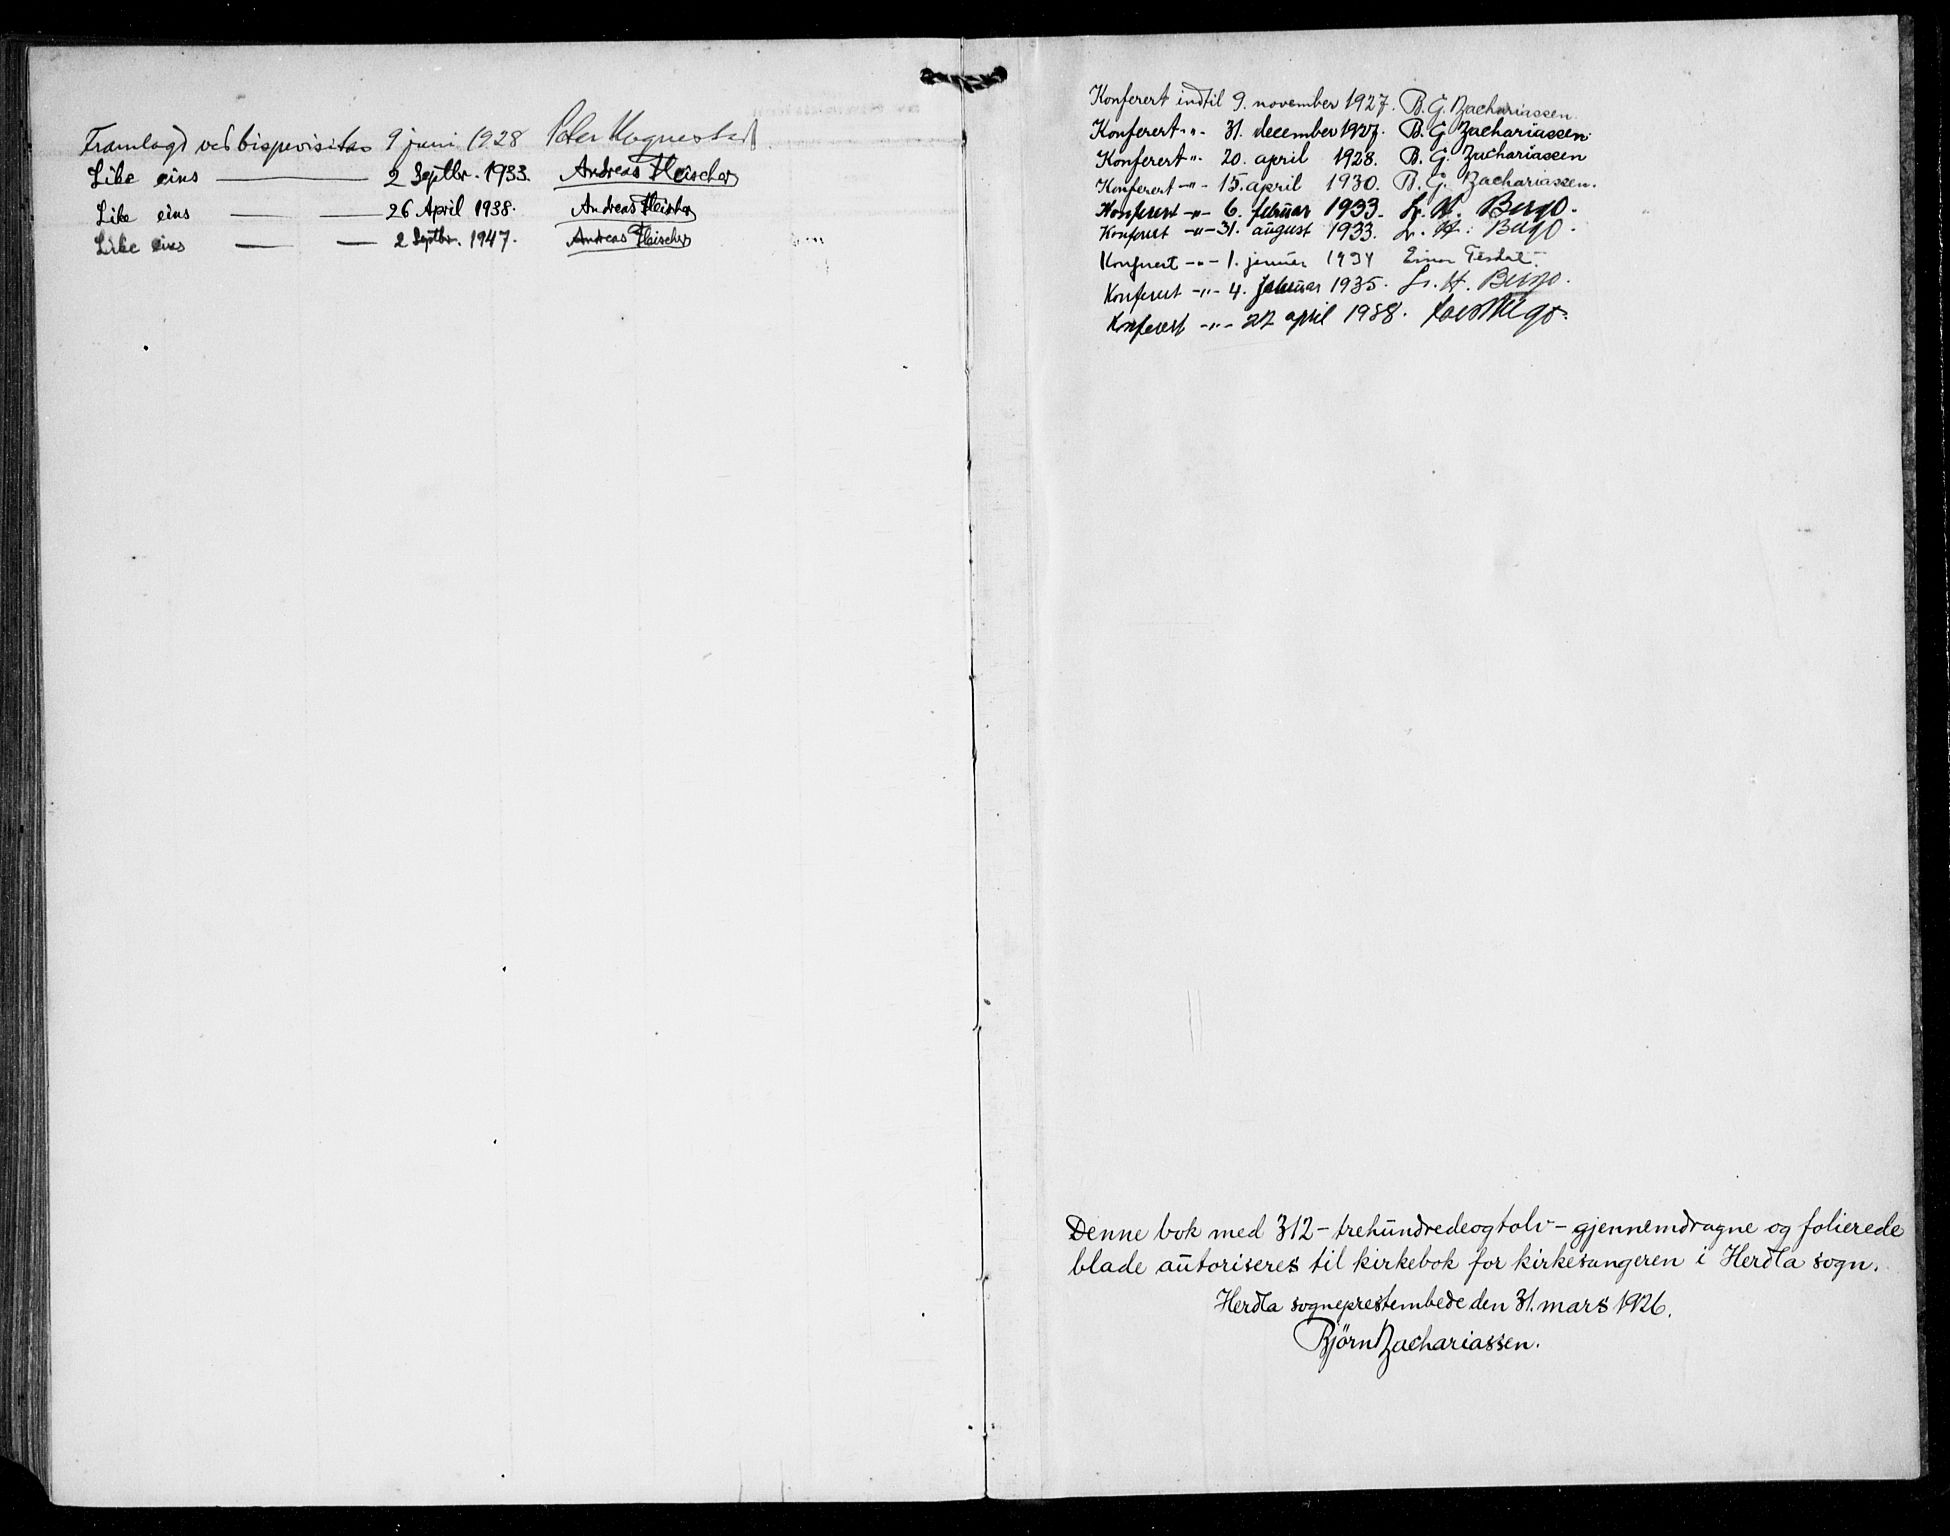 Framlagd ved bispevisitas 9 juni 1928 Peter Hognestad
Like eins — 2 Septbr. 1933. Andreas Fleischer
Like eins — — 26 April 1938. Andreas Fleischer
Like eins — — 2 Septbr. 1947. Andreas Fleischer
Konferert indtil 9. november 1927. B. G. Zachariassen.
Konferert -"- 31. december 1927. B. G. Zachariassen.
Konferert -"- 20. april 1928. B. G. Zachariassen
Konferert -"- 15. april 1930. B. G. Zachariassen.
Konferert -"- 6. februar 1933. L. H. Bergo.
Konferert -"- 31. august 1933. L. H. Bergo.
Konferert -"- 1. januar 1934 Einar Tesdal.
Konferert -"- 4. februar 1935. L. H. Bergo.
Konferert -"- 22 april 1938.
Denne bok med 312 - trehundredeogtolv - gjennemdragne og folierede
blade autoriseres til kirkebok for kirkesangeren i Herdla sogn.
Herdla sogneprestembede den 31. mars 1926.
Bjørn Zachariassen.